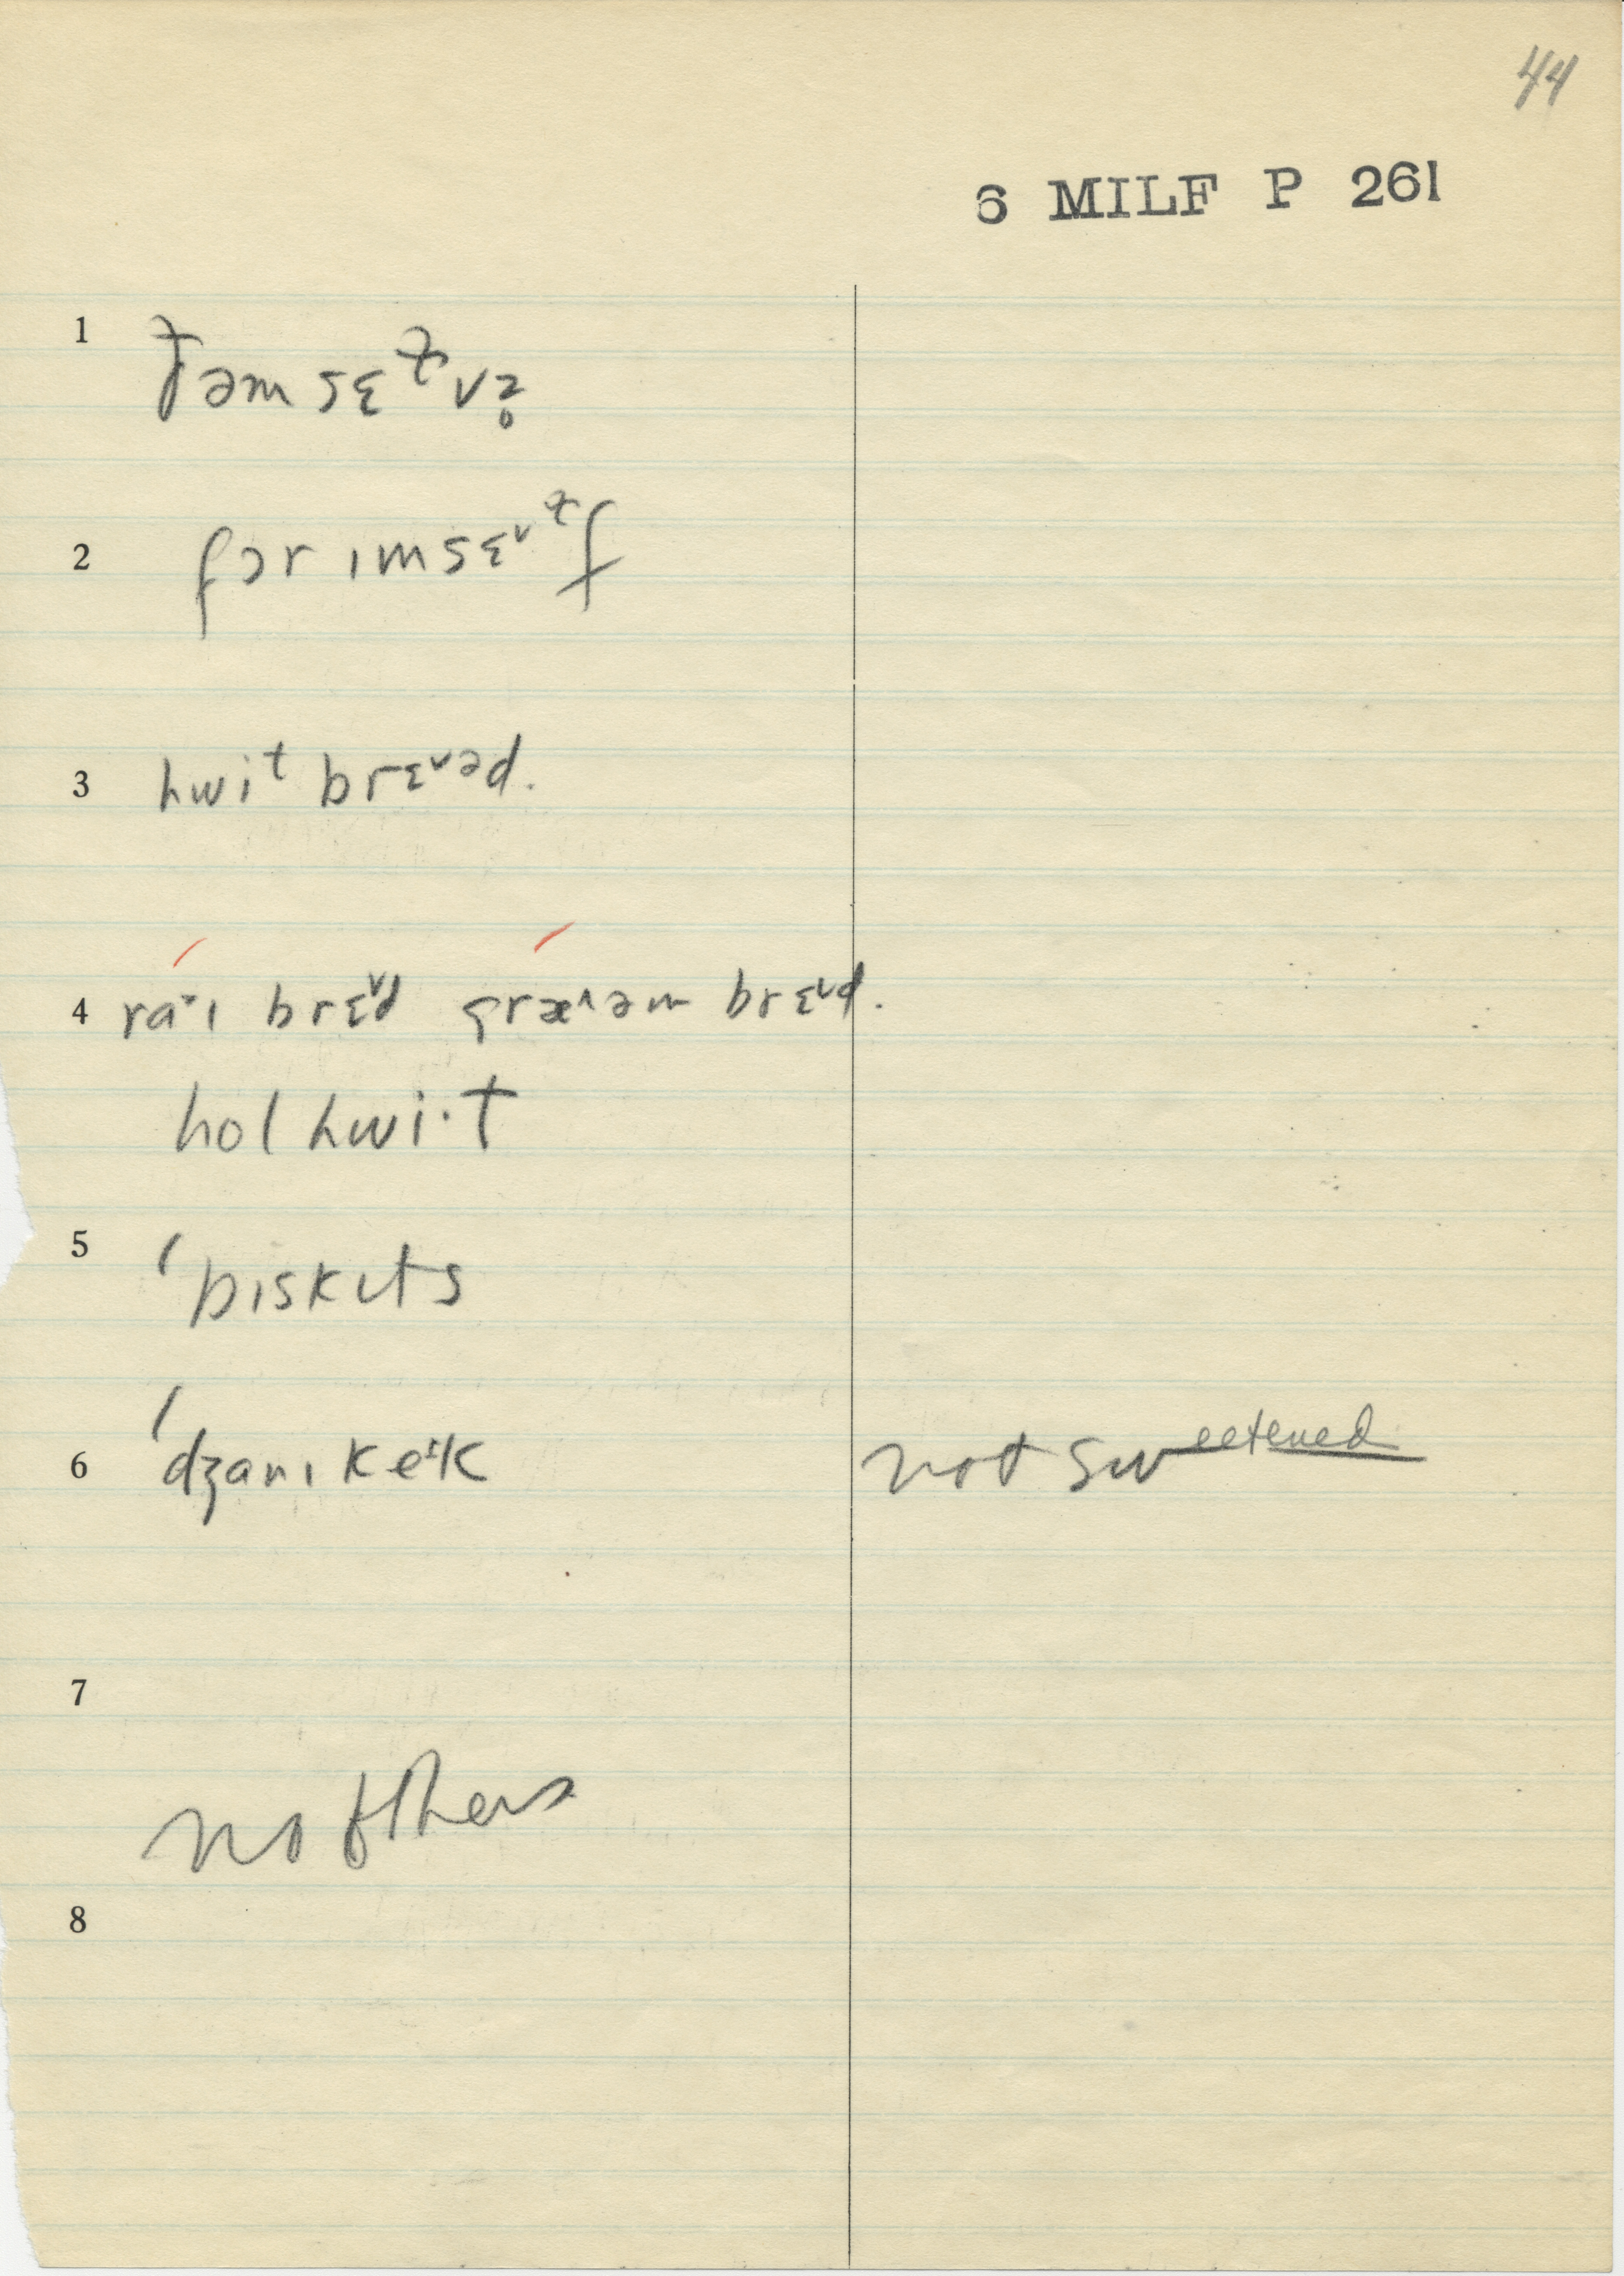 44
6 MILF P 261
1 ðəmsɛɫvz̥
2 fɔrɪmsɛᵛɫf
3 hwit brɛᵛəd.
4 ra˅ɪ brɛᵛd græ^əm brɛᵛd.
hol hwi·t
5 ˈbɪskɪts
6 ˈdʒanɪ keˑɪk not sweetened
7
no others
8